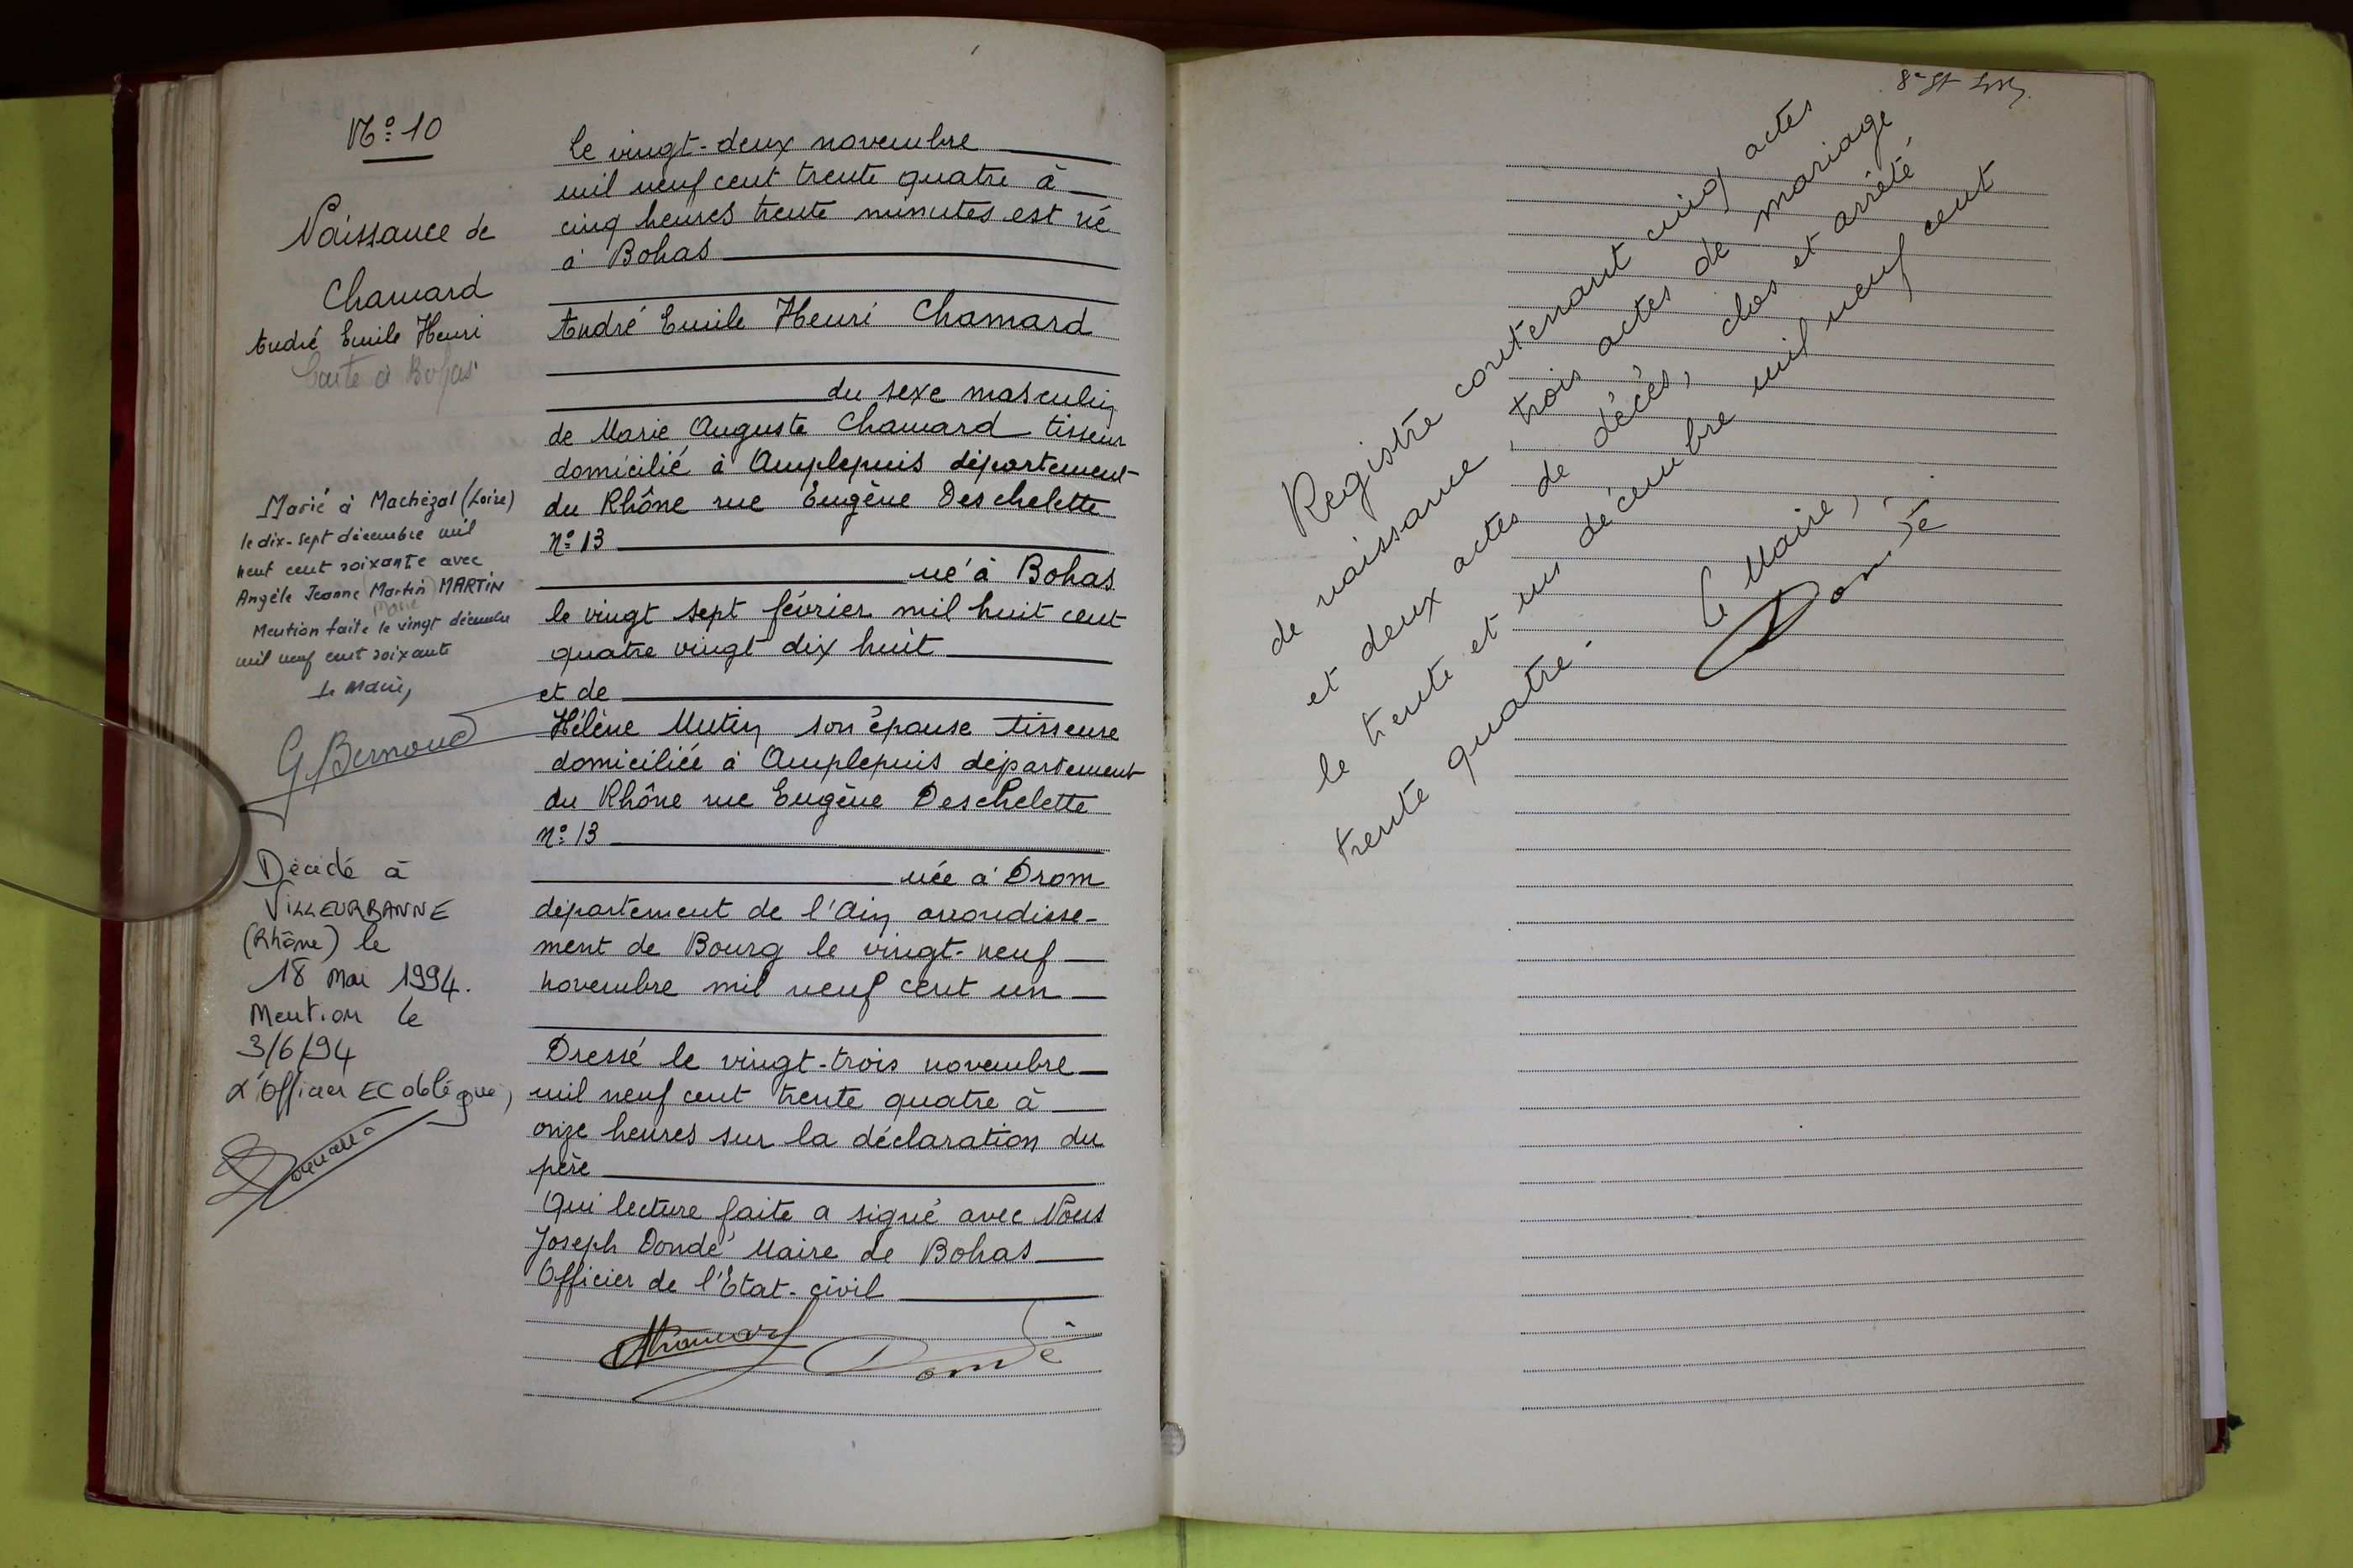 No 10
Naissance de
Chamard
André Emile Henri
Marié à Machézal (Loire)
le dix-sept décembre mil
neuf cent soixante avec
Angèle Jeanne (Martin) MARTIN
Marie
Mention faite le vingt décembre
mil neuf cent soixante
Le Maire,
G Bernoud
Décédé à
VILLEURBANNE
(Rhône) le
18 Mai 1994.
Mention le
3/6/94
L'Officier EC délégué,
Le vingt-deux novembre
mil neuf cent trente quatre à
cinq heures trente minutes est né
à Bohas
André Emile Henri Chamard
du sexe masculin
de Marie Auguste Chamard tisseur
domicilié à Amplepuis département
du Rhône rue Eugène Deschelette
No 13
né à Bohas
le vingt sept février mil huit cent
quatre vingt dix huit
et de
Hélène Mutin son épouse tisseuse
domiciliée à Amplepuis département
du Rhône rue Eugène Deschelette
No 13
née à Drom
département de l'Ain arrondisse-
ment de Bourg le vingt-neuf
novembre mil neuf cent un
Dressé le vingt-trois novembre
mil neuf cent trente quatre à
onze heures sur la déclaration du
père
Qui lecture faite a signé avec Nous
Joseph Dondé Maire de Bohas
Officier de l'Etat-civil
Chamard Dondé
Registre contenant cinq actes
de naissance, trois actes de mariage
et deux actes de décès, clos et arrêté
le trente et un décembre mil neuf cent
trente quatre.
Le Maire,
Dondé